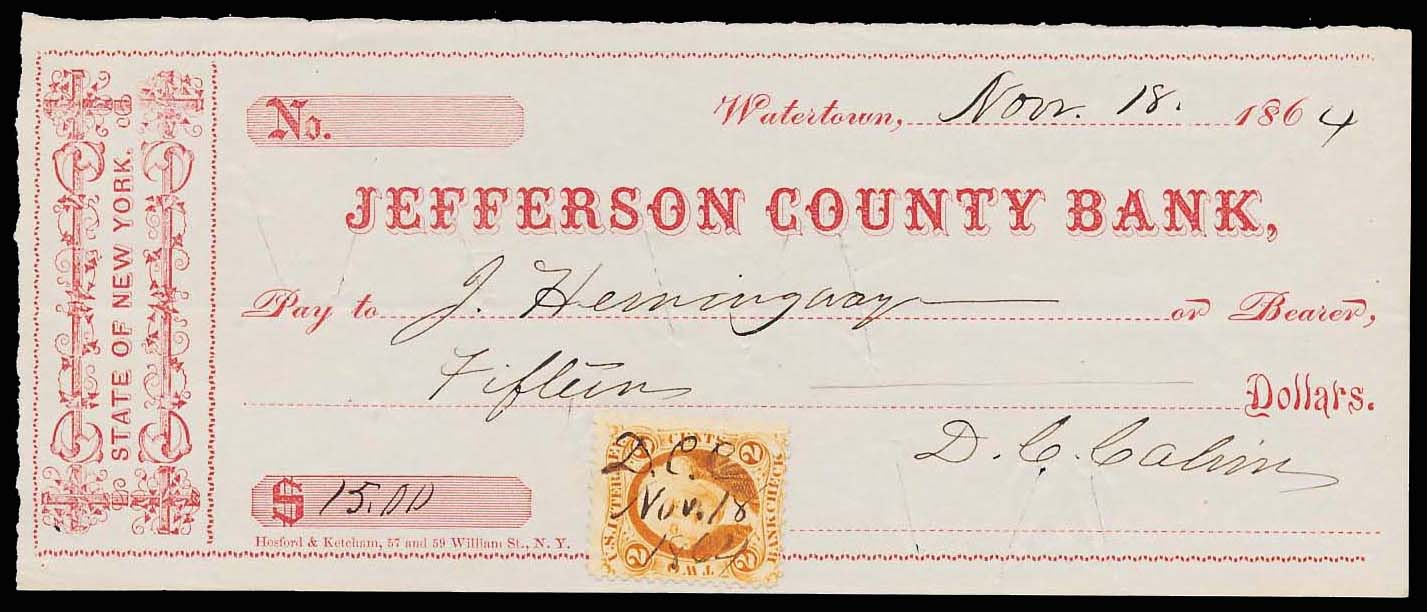 STATE OF NEW YORK.
No.
Watertown, Nov. 18. 1864
JEFFERSON COUNTY BANK,
Pay to J. Hemingway or Bearer,
Fifteen Dollars.
D. C.
$ 15.00
Hosford & Ketcham, 57 and 59 William St., N. Y.
2 CENTS 2
U.S. INTER. REV.
BANK CHECK
D. C. C.
Nov. 18
1864
2 TWO 2